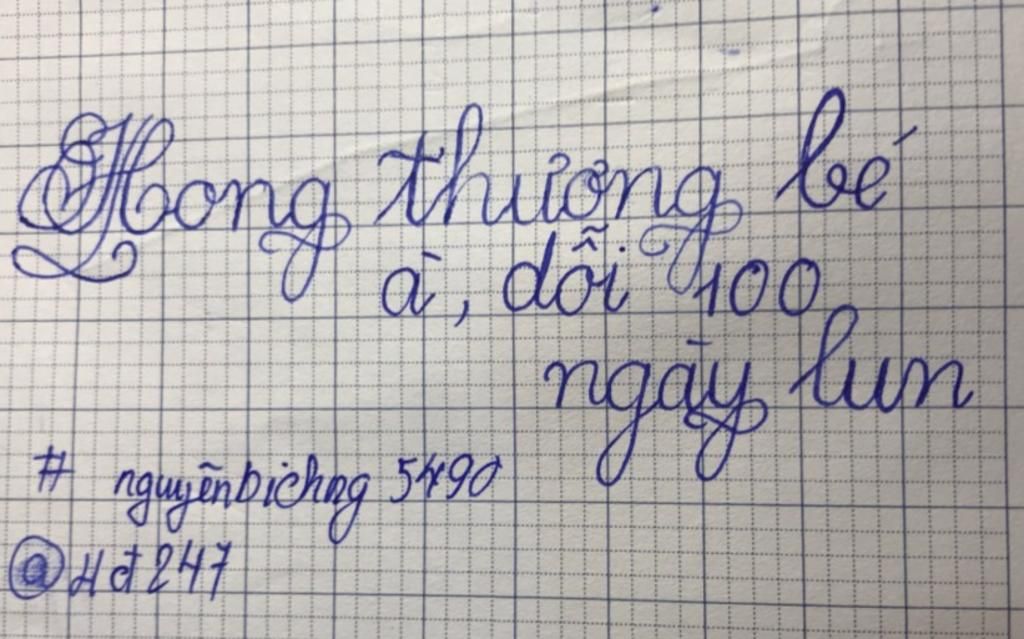 Hong thương bé
à, dỗi 100
ngày lun
# nguyễnbichng 5490
@ Hđ247